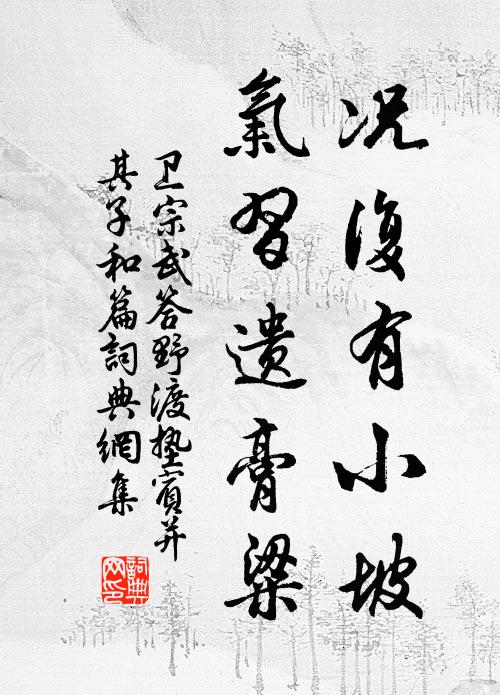 况復有小坡
氣習遺膏粱
卫宗武答野渡塾賓并
其子和篇詞典網集
詞典网印